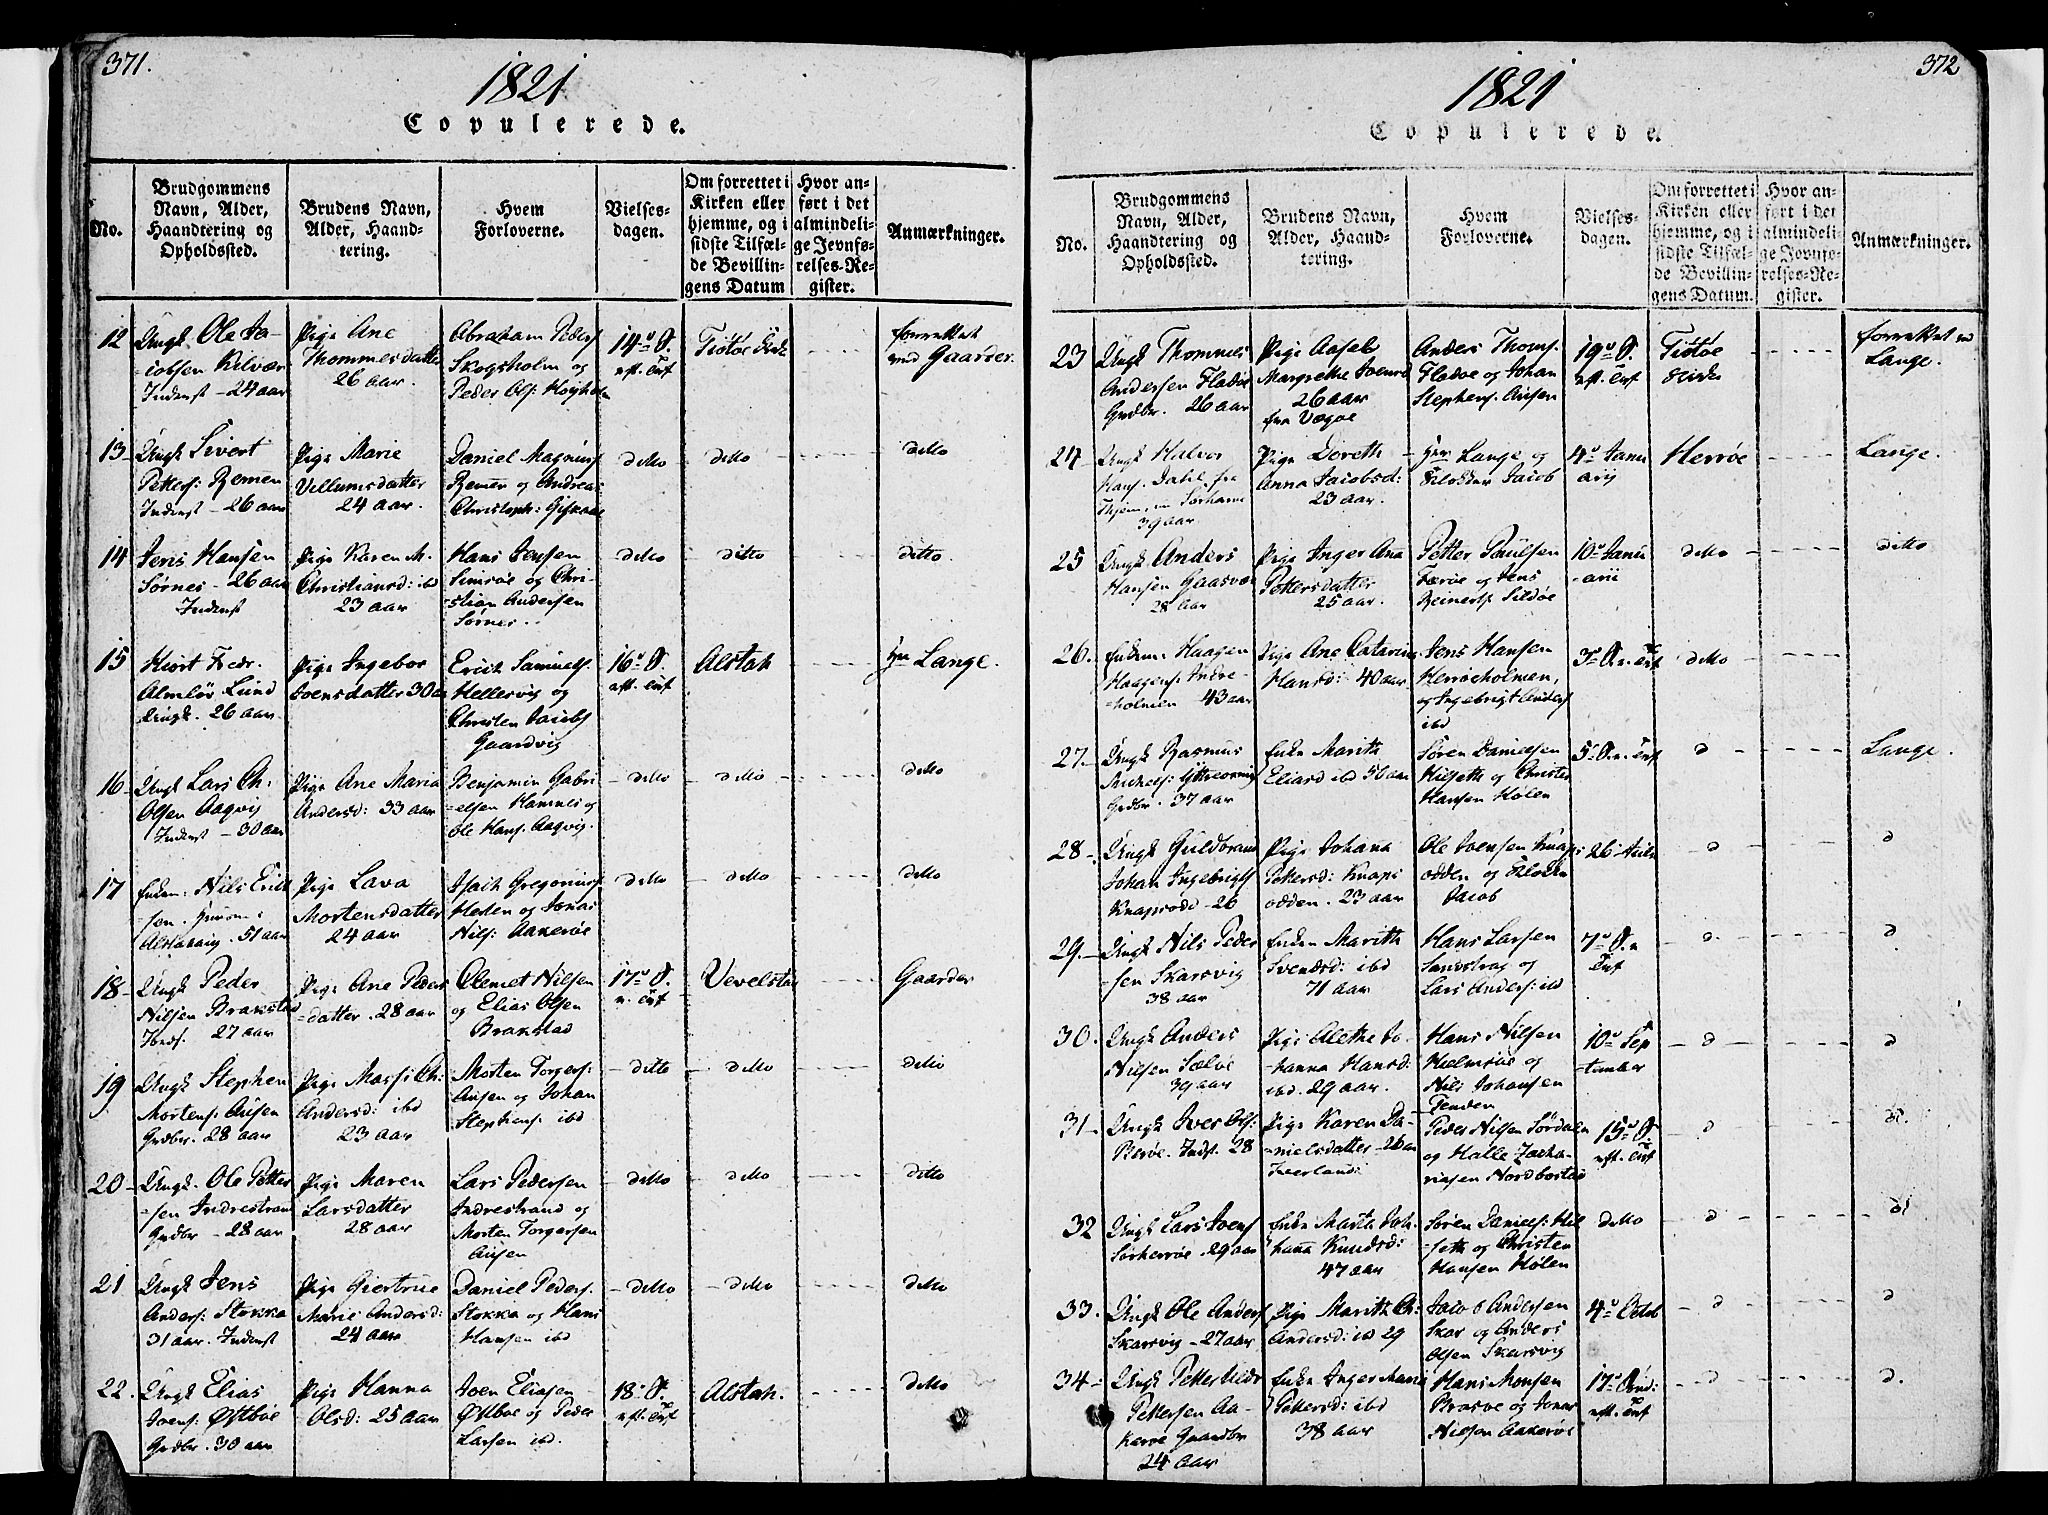 371.
1821
Copulerede.
No.
Brudgommens Navn, Alder, Haandtering og Opholdssted.
Brudens Navn, Alder, Haandtering.
Hvem Forloverne.
Vielses-dagen.
Om forrettet i Kirken eller hjemme, og i sidste Tilfælde Bevillingens Datum
Hvor anført i det almindelige Jevnførelses-Register.
Anmærkninger.
12 Ungk. Ole Ja-
-cobsen Kilvær
Indenst - 24 aar
Pige Ane
Thommesdatter
26 aar
Abraham Peders
Skogsholm og
Peder Ols:
14de S.
eft. Trf
Tiötöe Kirke
forrettet
ved Gaarder.
13 Ungk Sivert
Petters: Remen
Indenst - 26 aar
Pige Marie
Villumsdatter
24 aar.
Daniel Magnus
Remen og Andreas
Christoph:
ditto
ditto
ditto
14 Jens Hansen
Sörnes - 26 aar
Indenst
Pige Karen M.
Christiansd: ibd
23 aar
Hans Jensen
og Chri-
-stian Andersen
Sörnes
ditto
ditto
ditto
15
Lund
Ungk. 26 aar.
Pige Ingebor
Joensdatter 30 aar
Erich Samuels
Hellesvig og
Christen Jacobs
Gaardvig
16de S.
eft. Trf
Alstah
Hr Lange.
16 Ungk Lars Ch.
Olsen Aagvig
Indenst - 30 aar
Pige Ane Maria
Andersd: 33 aar
Benjamin Gabri-
-elsen Hamnes og
Ole Hans. Aagvig.
ditto
ditto
ditto
17 Enkem: Nils Erich
-sen
51 aar
Pige Lava
Mortensdatter
24 aar
Isach Gregorius
Heden og Jonas
Nils: Aakeröe
ditto
ditto
ditto
18 Ungk Peder
Nilsen Brakstad
Inds. 27 aar
Pige Ane Peders
-datter. 28 aar
Clemet Nilsen
og Elias Olsen
Brakstad
17de S.
e. Trf
Vevelstad
Gaarder
19 Ungk Stephen
Mortens: Ausen
Grdbr. 28 aar
Pige Massi Ch:
Andersd: ibd
23 aar
Morten Torgers:
Ausen og Johan
Stephens: ibd
ditto
ditto
ditto
20 Ungk. Ole Petter
-sen Indrestrand
Grdbr - 28 aar
Pige Maren
Larsdatter
28 aar
Lars Pedersen
Indrestrand og
Morten Torgersen
Ausen
ditto
ditto
ditto
21 Ungk Jens
Anders: Stokka
31 aar. Indenst
Pige Giertrue
Marie Andersd:
24 aar
Daniel Peders:
Stokka og Hans
Hansen ibd
ditto
ditto
ditto
22. Ungk Elias
Joens: Østböe
Grdbr. 30 aar
Pige Hanna
Olsd: 25 aar
Joen Eliasen
Østböe og Peder
Larsen ibd.
18de S.
eft. Trf
Alstah.
ditto
372
1821
Copulerede.
No.
Brudgommens Navn, Alder, Haandtering og Opholdssted.
Brudens Navn, Alder, Haandtering.
Hvem Forloverne.
Vielses-dagen.
Om forrettet i Kirken eller hjemme, og i sidste Tilfælde Bevillingens Datum.
Hvor anført i det almindelige Jevnførelses-Register.
Anmærkninger.
23 Ungk Thommes
Andersen Fladöe
Grdbr. 26 aar
Pige Aasel
Margrethe Joensd
26 aar
fra Vægöe
Anders Thoms.
Fladöe og Johan
Stephens. Ausen
19de S.
eft. Trf
Tiötöe
Kirke
forrettet ved
Lange.
24 Ungk Halvor
Hans. Dahl fra
39 aar
Pige Doreth
Anna Jacobsd:
23 aar
Herr Lange og
Klokker Jacob
4de Janu
arij
Herröe
Lange.
25 Ungk Anders
Hansen Gaasvær
28 Aar
Pige Inger Ana
Pettersdatter
25 aar.
Petter Paulsen
Færöe og Jens
Reinerts. Sildöe
10de Janu
-arii
ditto
ditto
26. Enkem: Haagen
Haagens. Indre-
-holmen 43 aar
Pige Ane Catarina
Hansd: 40 aar
Jens Hansen
Herröeholmen,
og Ingebrigt Anders
ibd
3de S. e. Trf
ditto
27. Ungk Rasmus
Michels:
Grdbr. 37 aar
Enke Marith
Eliasd ibd 50 aar
Sören Danielsen
Hilseth og Christen
Hansen Hölen
5te S. e. Trf
d
Lange.
28 Ungk Guldbrand
Johan Ingebrigts
26
Pige Johana
Pettersd: Knaps
odden. 23 aar
Ole Joensen Knaps
odden og Klokker
Jacob
26
d
d
29. Ungk Nils Peder
-sen Skarsvig
38 aar
Enken Marith
Svendsd: ibd
71 aar
Hans Larsen
Sandstrag og
Lars Anders: ibd
7de S. e
Trf
d
d
30. Ungk Anders
Nilsen Sælöe
39 aar
Pige Alethe Jo-
-hanna Hansd:
ibd. 29 aar.
Hans Nilsen
Hielmsöe og
Nils Johansen
Tenden
10de Sep
-tember
d
d
31 Ungk Iver Ols:
Reröe. Indst. 28
Pige Karen Da-
-nielsdatter 26 aar
Peder Nilsen Sördalen
og Halle Zacha-
riasen Nordbostad
15de S.
eft. Trf
d
d.
32 Ungk Lars Joens
Sörherröe. 29 aar
Enke Marta Joh.
hanna Knudsd:
47 aar
Sören Daniels: Hil
-seth og Christen
Hansen Hölen
ditto
d
d
33. Ungk Ole Anders
Skarsvig - 27 aar
Pige Marith Ch:
Andersd: ibd 29
Jacob Andersen
Skar og Anders
Olsen Skarsvig
4de Octob
d
d
34 - Ungk Petter
Pettersen Aa-
keröe Gaardbr
24 Aar
Enke Inger Maria
Pettersd: ibd
38 aar
Hans Monsen
Brasöe og Jonas
Nilsen Aakeröe
17de
eft. Trf
d
d.